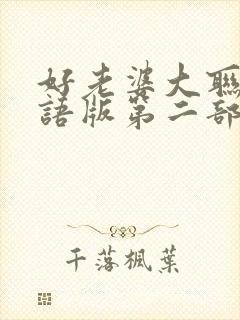 好老婆大聯
語版第二部
千落楓葉